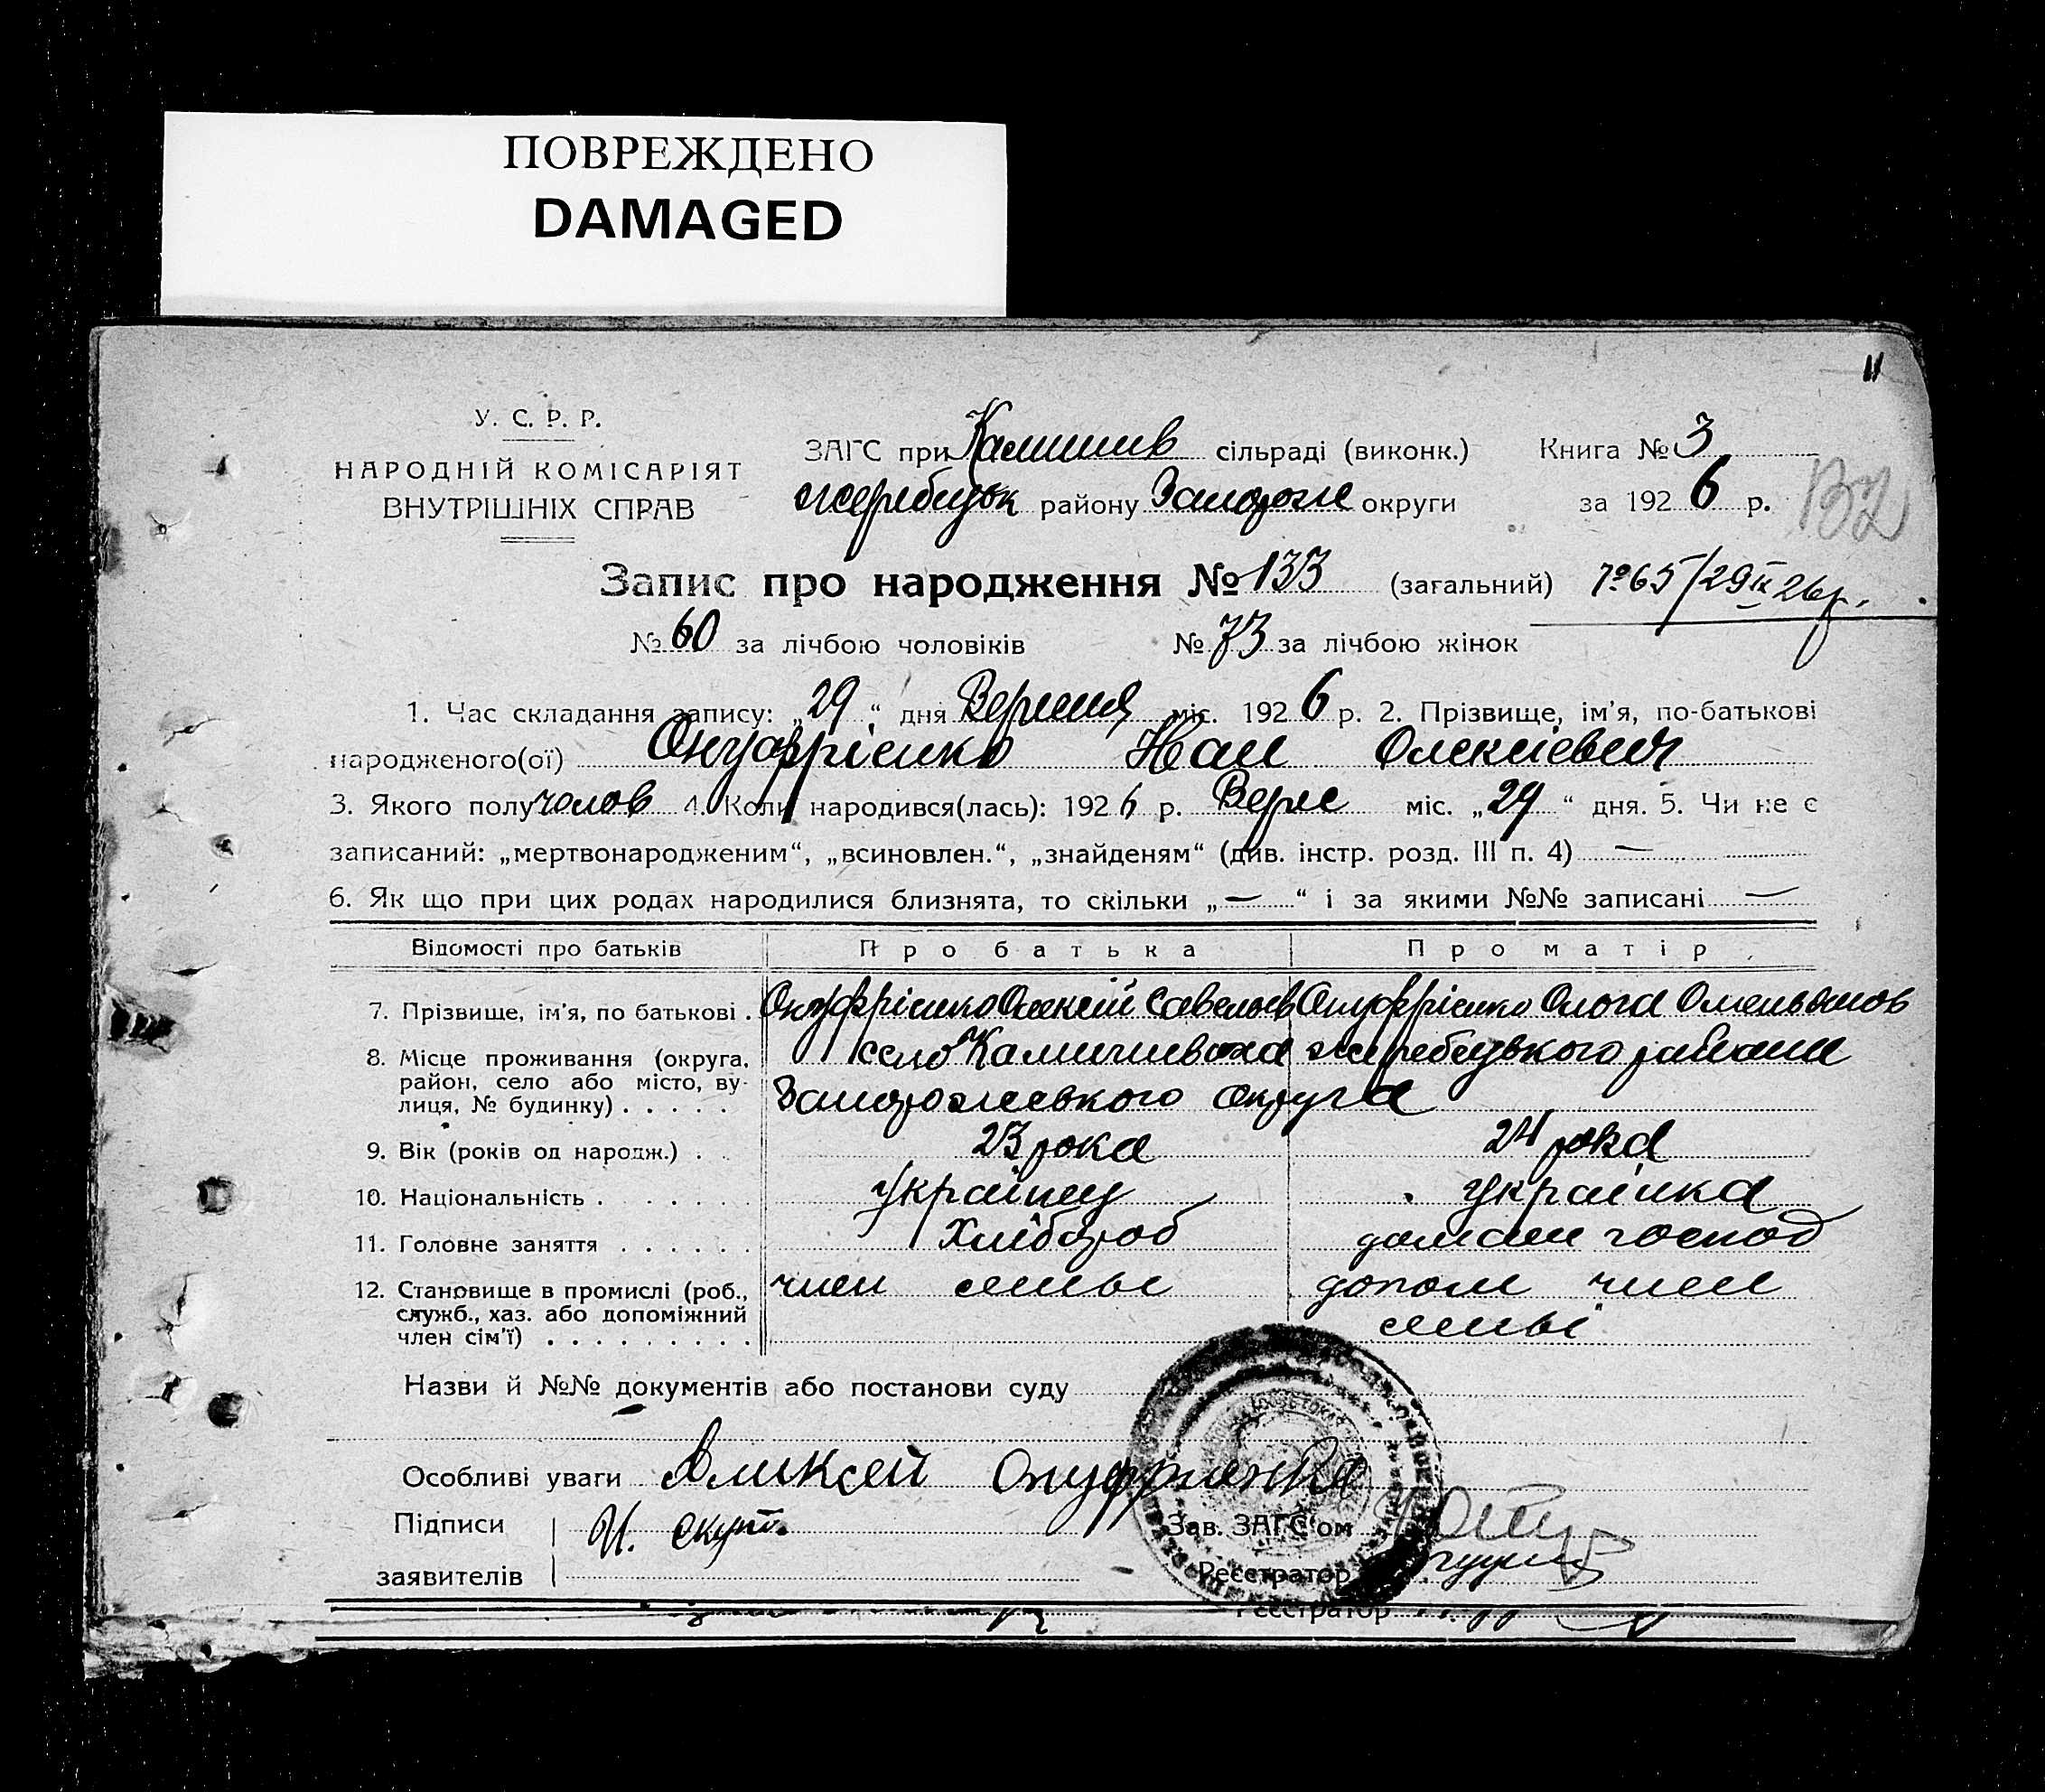 ПОВРЕЖДЕНО
DAMAGED
11
У. С. Р. Р.
НАРОДНІЙ КОМІСАРІЯТ
ВНУТРІШНІХ СПРАВ
ЗАГС при Камишив сільраді (виконк.) Книга № 3
Жеребецьк району Запорож округи за 1926 р.
Запис про народження № 133 (загальний)
№ 60 за лічбою чоловіків № 73 за лічбою жінок
1. Час складання запису: „29“ дня Вересня міс. 1926 р. 2. Прізвище, ім'я, по-батькові
народженого(ої) Онуфрієнко Иван Олексієвич
3. Якого полу чолов 4. Коли народився(лась): 1926 р. Верес міс. „29“ дня. 5. Чи не є
записаний: „мертвонародженим“, „всиновлен.“, „знайденям“ (див. інстр. розд. III п. 4) —
6. Як що при цих родах народилися близнята, то скільки „—“ і за якими №№ записані —
Відомості про батьків Про батька Про матір
7. Прізвище, ім'я, по батькові . Онуфрієнко Олексій Савельєв Онуфрієнко Ольга Омельянов
8. Місце проживання (округа, район, село або місто, вулиця, № будинку) . . . . . село Камишиваха Жеребецького района
Запорожського округа
9. Вік (років од народж.) . . 23 рока 24 рока
10. Національність . . . . . . Українец Українка
11. Головне заняття . . . . . . Хлібороб домашн господ
12. Становище в промислі (роб., служб., хаз. або допоміжний член сім'ї) . . . . . . . . . член семьі допом член
семьі
Назви й №№ документів або постанови суду
Особливі уваги Аликсей Онуфриенко
Підписи заявителів
Зав. ЗАГС'ом
Реєстратор
Реєстратор